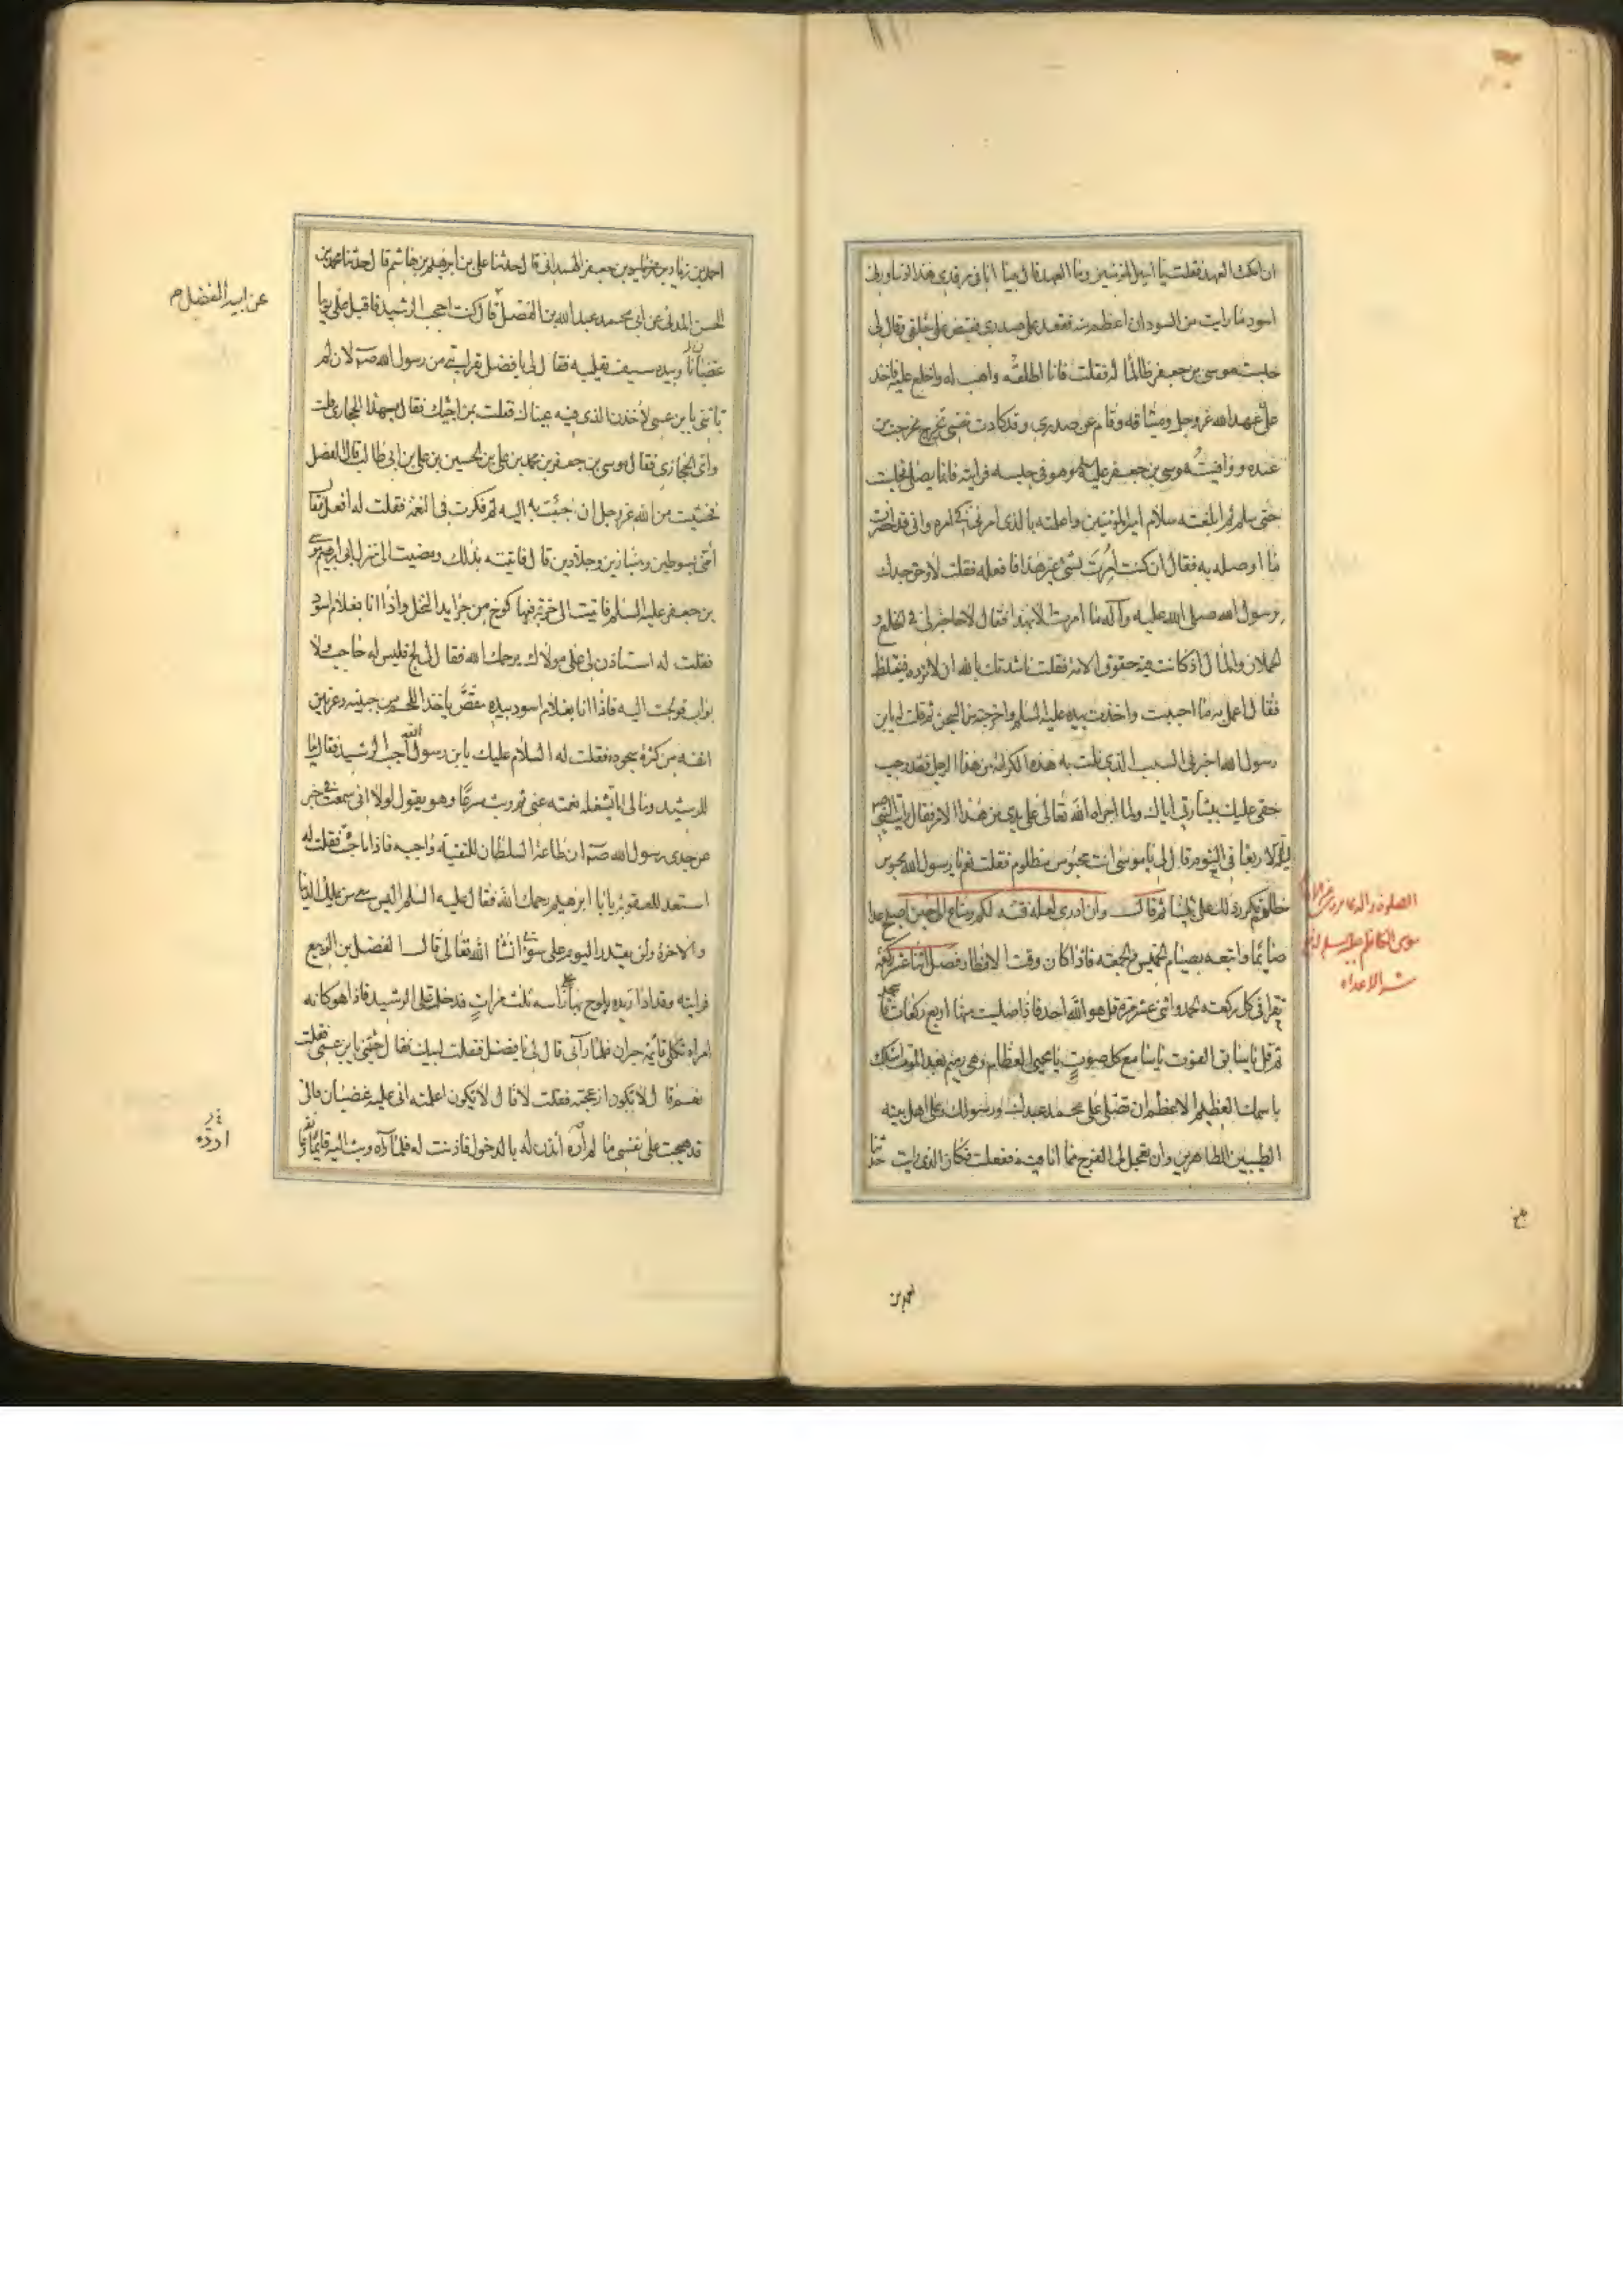 ان انكث العهد فقلت يا امير المؤمنين وما العهد قال بينا انا فى مرقدى هذا اذ ساورنى
اسود ما رايت من السودان اعظم منه فقعد على صدرى فقبض على حلقى وقال لى
حبست موسى بن جعفر ظالما له فقلت فانا اطلقه واهب له واخلع عليه فاخذ
على عهد الله عز وجل وميثاقه وقام عن صدرى وقد كادت نفسى تخرج فخرجت من
عنده ووافيت موسى بن جعفر عليه وهو فى حبسه فرايته قائما يصلى فجلست
حتى سلم ثم ابلغته سلام امير المؤمنين واعلمته بالذى امرنى به فى امره وانى قد احضرت
ما اوصله به فقال ان كنت امرت بشئ غير هذا فافعله فقلت لا وحق جدك
رسول الله صلى الله عليه وآله ما امرت الا بهذا فقال لا حاجة لى فى الخلع و
الحملان والمال اذ كانت فيه حقوق الامة فقلت ناشدتك بالله ان لا ترده فيغتاظ
فقال اعمل به ما احببت واخذت بيده عليه السلم واخرجته من السجن ثم قلت له يابن
رسول الله اخبرنى السبب الذى نلت به هذه الكرامة من هذا الرجل فقد وجب
حقى عليك ببشارتى اياك ولما اجراه الله تعالى على يدى من هذا الامر فقال رايت النبى
ليلة الاربعا فى النوم فقال لى يا موسى انت محبوس مظلوم فقلت نعم يا رسول الله محبوس
مظلوم فكرر ذلك على ثلثا ثم قال وان ادرى لعله فتنة لكم ومتاع الى حين اصبح غدا
صائما واتبعه بصيام الخميس والجمعة فاذا كان وقت الافطار فصل اثنا عشر ركعة
تقرا فى كل ركعة الحمد واثنى عشر مرة قل هو الله احد فاذا صليت منها اربع ركعات
ثم قل يا سابق الفوت يا سامع كل صوت يا محيى العظام وهى رميم بعد الموت اسئلك
باسمك العظيم الاعظم ان تصلى على محمد عبدك ورسولك وعلى اهل بيته
الطيبين الطاهرين وان تعجل لى الفرج مما انا فيه ففعلت فكان الذى رايت حدثنا
الصلوة والدعا
موسى الكاظم عليه السلم
شر الاعداء
احمد بن
احمد بن زياد بن جعفر الهمدانى قال حدثنا على بن ابرهيم بن هاشم قال حدثنا محمد بن
الحسن المدنى عن ابى محمد عبد الله بن الفضل قال كنت احجب الرشيد فاقبل على يوما
غضبانا وبيده سيف يقلبه فقال لى يا فضل بقرابتى من رسول الله ص لان لم
تاتنى بابن عمى لاخذن الذى فيه عيناك فقلت بمن اجيئك فقال بهذا الحجازى قلت
واى الحجازى فقال موسى بن جعفر بن محمد بن على بن الحسين بن على بن ابى طالب قال الفضل
فخشيت من الله عز وجل ان جئت به اليه ثم فكرت فى النقمة فقلت له افعل فقال
ائتنى بسوطين وهبنازين وجلادين قال فاتيته بذلك ومضيت الى منزل ابى ابرهيم موسى
بن جعفر عليه السلم فاتيت الى خربة فيها كوخ من جرايد النخل واذا انا بغلام اسود
فقلت له استاذن لى على مولاك يرحمك الله فقال لى لج فليس له حاجب ولا
بواب فولجت اليه فاذا انا بغلام اسود بيده مقص ياخذ اللحم من جبينه وعرنين
انفه من كثرة سجوده فقلت له السلام عليك يا بن رسول الله اجب الرشيد فقال ما
للرشيد ومالى اما تشغله نعمته عنى ثم وثب مسرعا وهو يقول لولا انى سمعت فى خبر
عن جدى رسول الله ص ان طاعة السلطان للتقية واجبه اذا ما جئت فقلت له
استعد للعقوبة يا ابا ابرهيم رحمك الله فقال عليه السلم اليس معى من يملك الدنيا
والاخرة ولن يقدر اليوم على سوء بى انشا الله تعالى قال الفضل بن الربيع
فرايته وقد ادار يده يلوح بها على راسه ثلث مرات فدخلت على الرشيد فاذا هو كانه
امراة ثكلى قائم حيران فلما رآنى قال لى يا فضل فقلت لبيك فقال جئتنى بابن عمى فقلت
نعم قال لا تكون ازعجته فقلت لا قال لا تكون اعلمته انى عليه غضبان فانى
قد هيجت على نفسى ما لم ارده ائذن له بالدخول فاذنت له فلما رآه وثب اليه قائما
عن ابيه الفضل
ارده